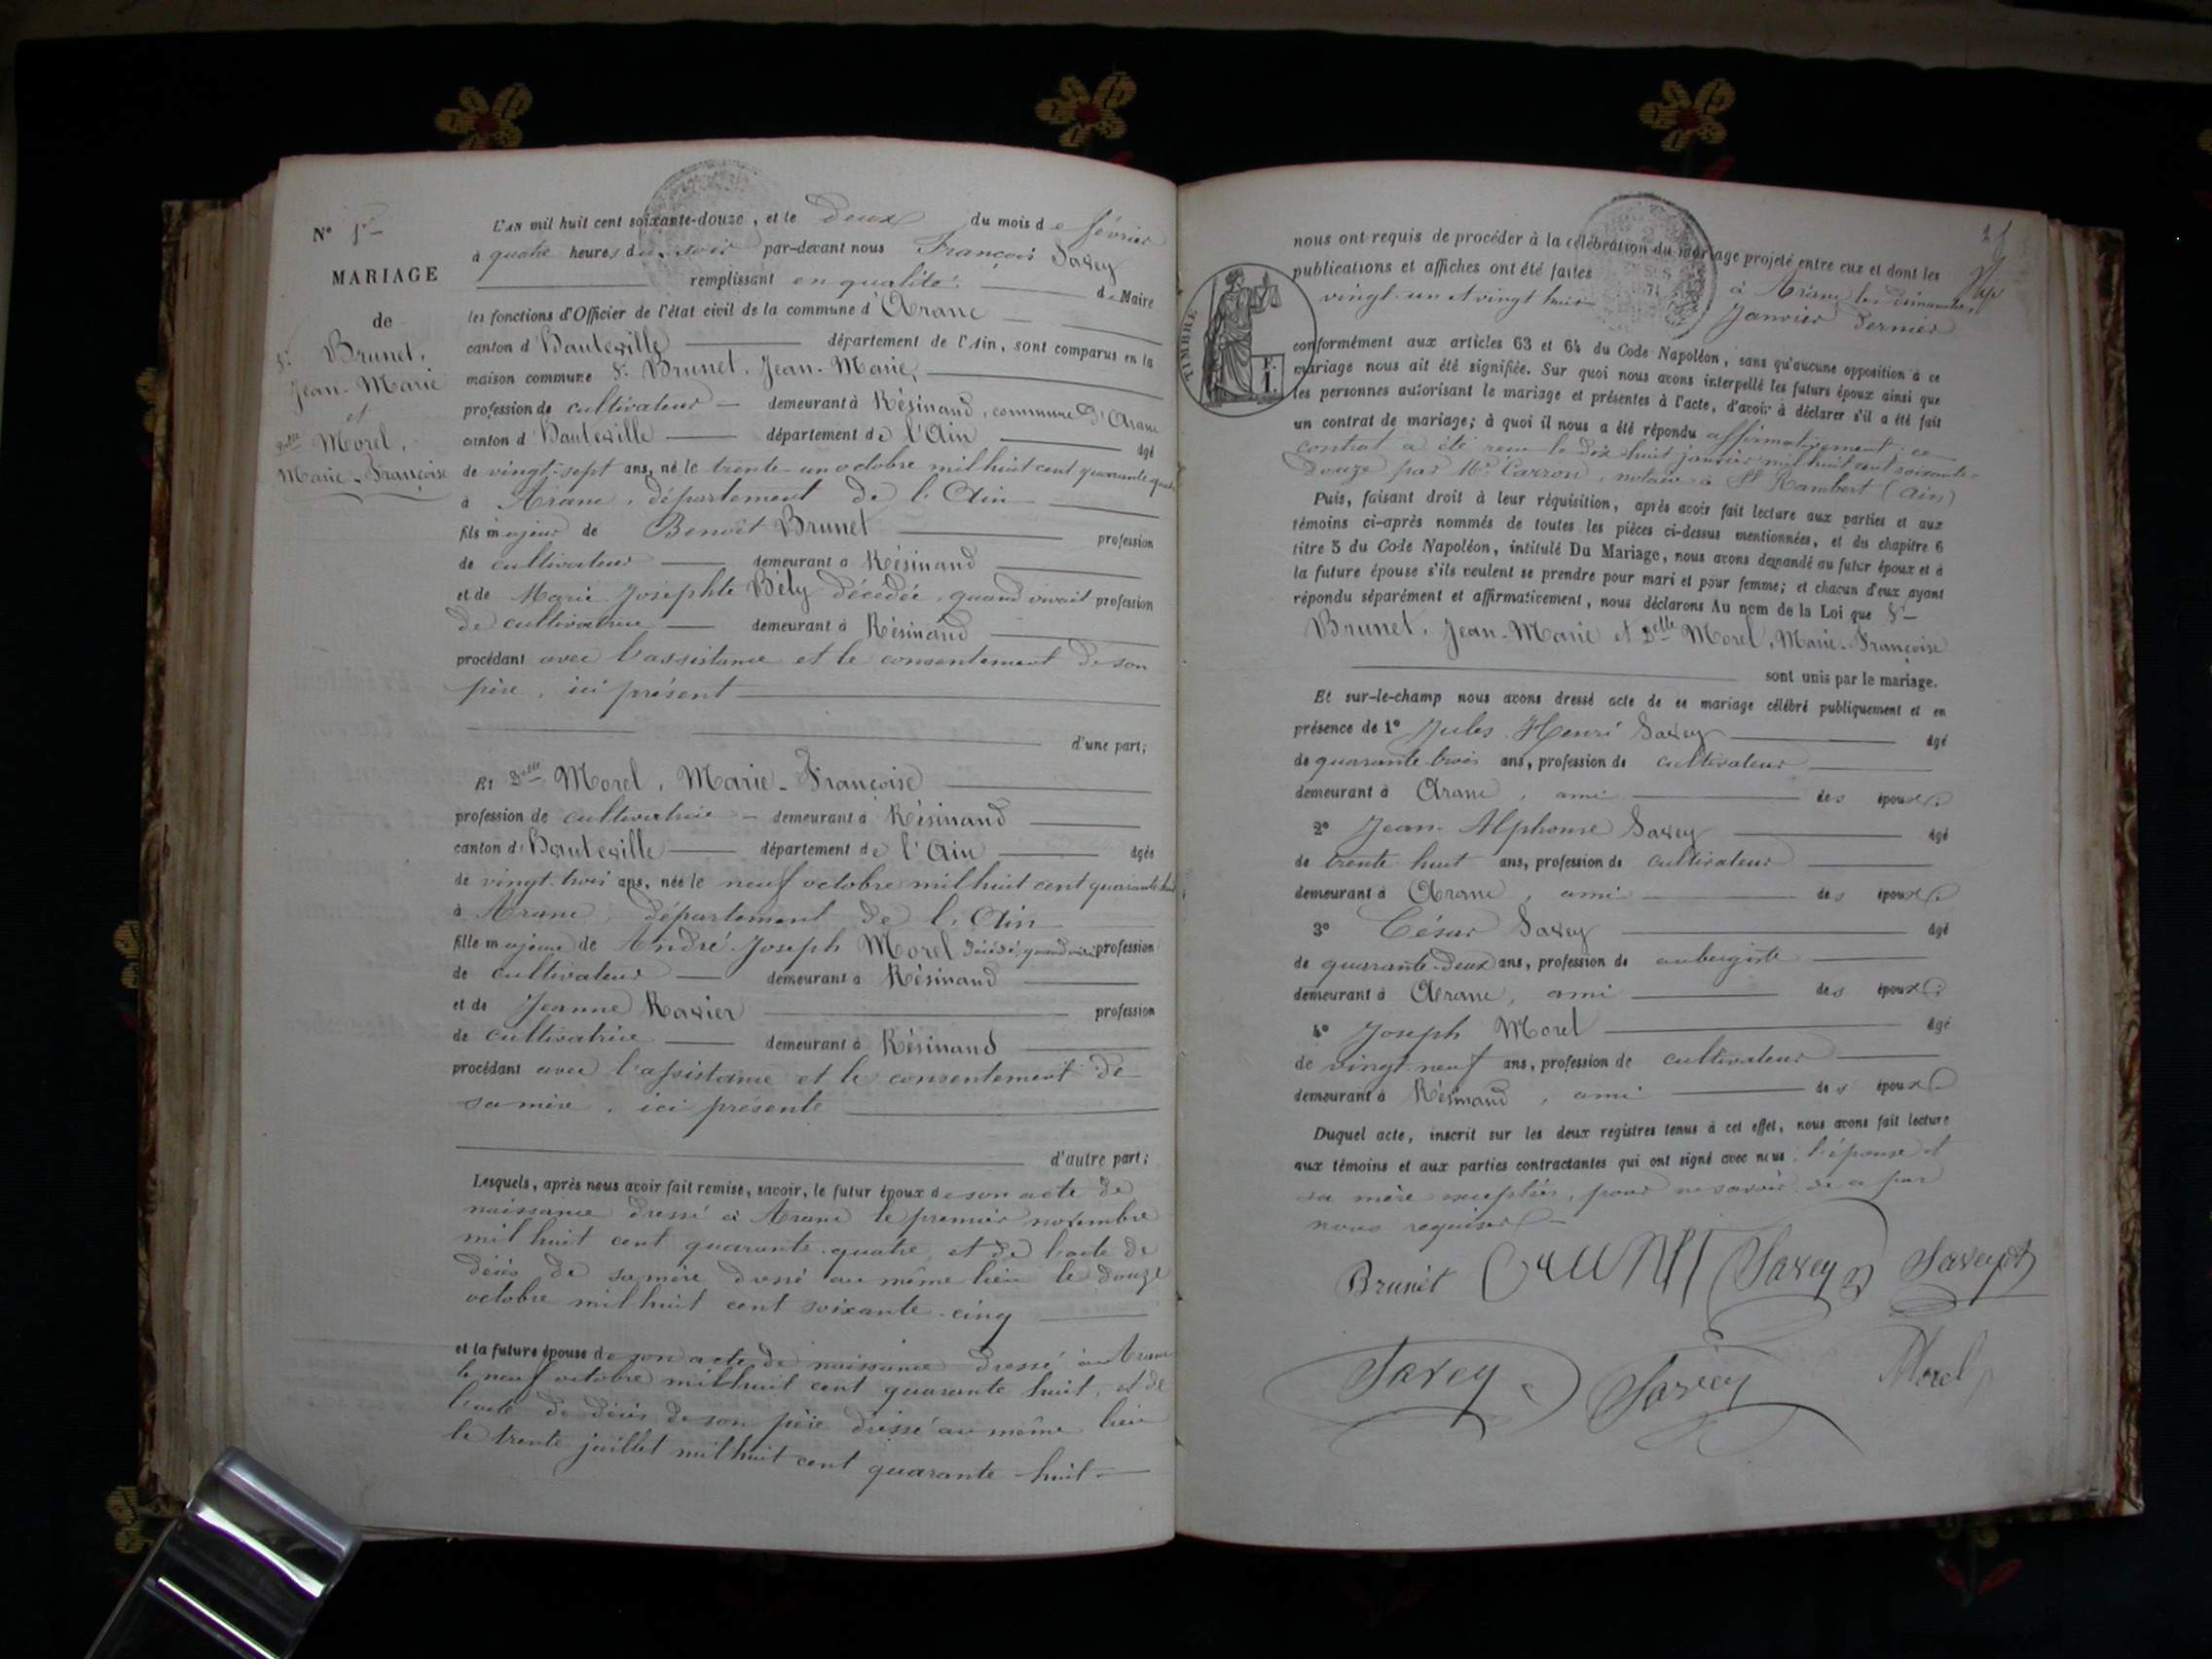 N° 1er
MARIAGE
de
Sr Brunet,
Jean-Marie
et
Delle Morel,
Marie-Françoise
L'AN mil huit cent soixante-douze, et le deux du mois de février
à quatre heures du soir par-devant nous François Savey
remplissant en qualité de Maire
les fonctions d'Officier de l'état civil de la commune d'Aranc
canton d'Hauteville département de l'Ain, sont comparus en la
maison commune Sr Brunet, Jean-Marie,
profession de cultivateur demeurant à Résinand, commune d'Aranc
canton d'Hauteville département de l'Ain âgé
de vingt-sept ans, né le trente-un octobre mil huit cent quarante-quatre
à Aranc, département de l'Ain
fils majeur de Benoît Brunet profession
de cultivateur demeurant à Résinand
et de Marie Josephte Bély décédée, quand vivait profession
de cultivatrice demeurant à Résinand
procédant avec l'assistance et le consentement de son
père, ici présent
d'une part;
Et Delle Morel, Marie-Françoise
profession de cultivatrice demeurant à Résinand
canton d'Hauteville département de l'Ain âgée
de vingt-trois ans, née le neuf octobre mil huit cent quarante huit
à Aranc, département de l'Ain
fille majeure de André Joseph Morel décédé, quand vivait profession
de cultivateur demeurant à Résinand
et de Jeanne Ravier profession
de cultivatrice demeurant à Résinand
procédant avec l'assistance et le consentement de
sa mère, ici présente
d'autre part;
Lesquels, après nous avoir fait remise, savoir, le futur époux de son acte de
naissance dressé à Aranc le premier novembre
mil huit cent quarante-quatre, et de l'acte de
décès de sa mère dressé au même lieu le douze
octobre mil huit cent soixante-cinq
et la future épouse de son acte de naissance dressé à Aranc
le neuf octobre mil huit cent quarante huit, et de
l'acte de décès de son père dressé au même lieu
le trente juillet mil huit cent quarante-huit
nous ont requis de procéder à la célébration du mariage projeté entre eux et dont les
publications et affiches ont été faites à Aranc les dimanches
vingt-un et vingt huit Janvier dernier
TIMBRE
F. I.
conformément aux articles 63 et 64 du Code Napoléon, sans qu'aucune opposition à ce
mariage nous ait été signifiée. Sur quoi nous avons interpellé les futurs époux ainsi que
les personnes autorisant le mariage et présentes à l'acte, d'avoir à déclarer s'il a été fait
un contrat de mariage; à quoi il nous a été répondu affirmativement; ce
contrat a été reçu le dix huit janvier mil huit cent soixante-
douze par Me Carron, notaire à St Rambert (Ain)
Puis, faisant droit à leur réquisition, après avoir fait lecture aux parties et aux
témoins ci-après nommés de toutes les pièces ci-dessus mentionnées, et du chapitre 6
titre 5 du Code Napoléon, intitulé Du Mariage, nous avons demandé au futur époux et à
la future épouse s'ils veulent se prendre pour mari et pour femme; et chacun d'eux ayant
répondu séparément et affirmativement, nous déclarons Au nom de la Loi que Sr
Brunet, Jean-Marie et Delle Morel, Marie-Françoise
sont unis par le mariage.
Et sur-le-champ nous avons dressé acte de ce mariage célébré publiquement et en
présence de 1° Jules Henri Savey âgé
de quarante-trois ans, profession de cultivateur
demeurant à Aranc, ami des époux
2° Jean-Alphonse Savey âgé
de trente huit ans, profession de cultivateur
demeurant à Aranc, ami des époux
3° César Savey âgé
de quarante-deux ans, profession de aubergiste
demeurant à Aranc, ami des époux
4° Joseph Morel âgé
de vingt-neuf ans, profession de cultivateur
demeurant à Résinand, ami des époux
Duquel acte, inscrit sur les deux registres tenus à cet effet, nous avons fait lecture
aux témoins et aux parties contractantes qui ont signé avec nous, l'épouse et
sa mère exceptées, pour ne savoir, de ce par
nous requises
Brunet Savey Savey
Savey Savey Morel